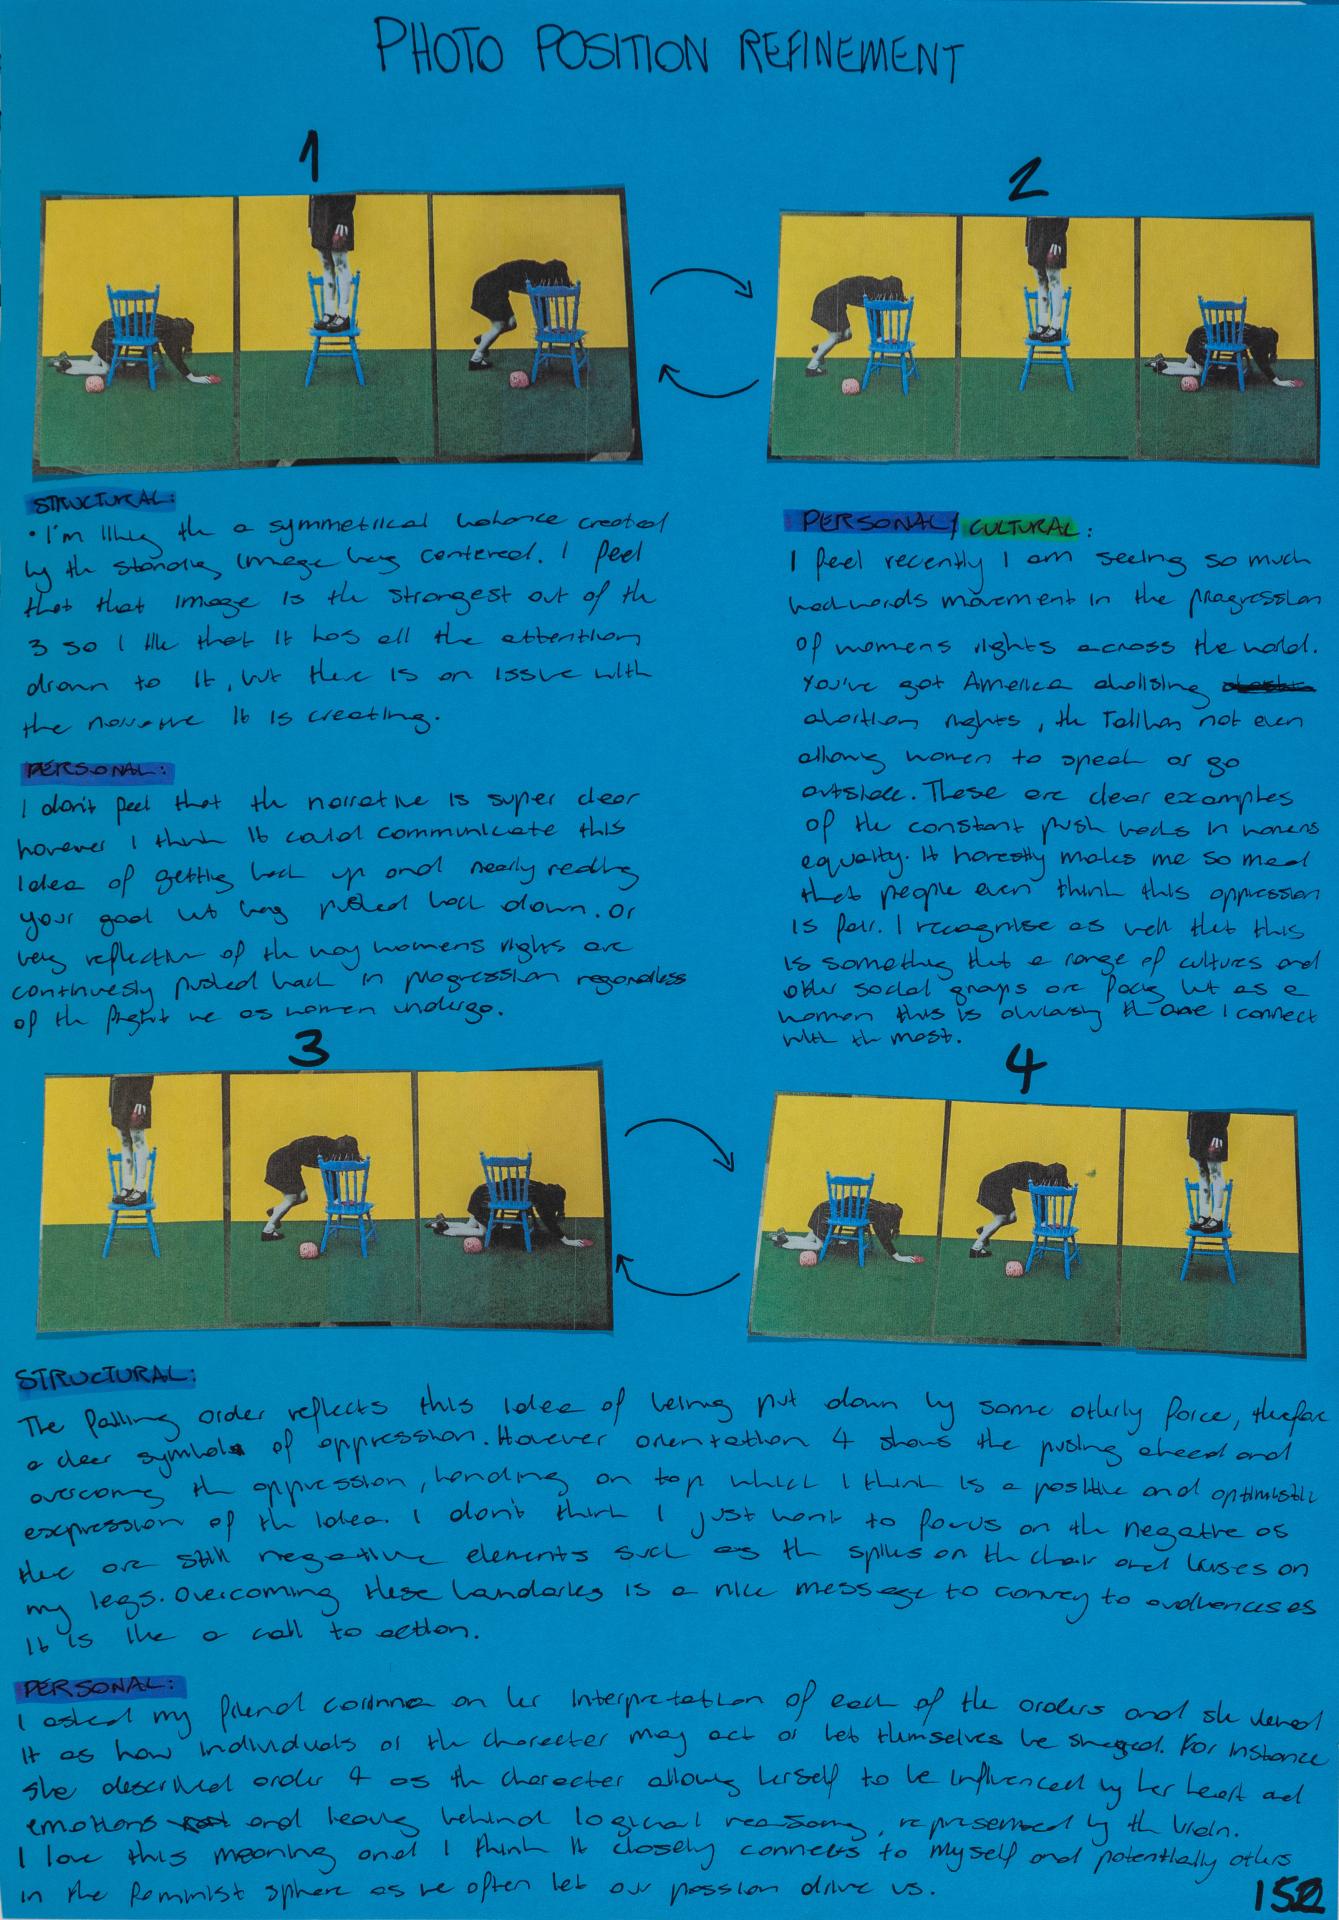 PHOTO POSITION REFINEMENT
1
2
STRUCTURAL:
• I'm liking the a symmetrical balance created
by the standing image being centered. I feel
that that image is the strongest out of the
3 so I like that it has all the attention
drawn to it, but there is an issue with
the narrative it is creating.
PERSONAL:
I don't feel that the narrative is super clear
however I think it could communicate this
idea of getting back up and nearly reaching
your goal but being pushed back down. Or
very reflective of the way womens rights are
continuesly pushed back in progression regardless
of the fight we as women undergo.
PERSONAL / CULTURAL:
I feel recently I am seeing so much
backwards movement in the progression
of womens rights across the world.
You've got America abolising
abortion rights, the Taliban not even
allowing women to speak or go
outside. These are clear examples
of the constant push backs in womens
equality. It honestly makes me so mad
that people even think this oppression
is fair. I recognise as well that this
is something that a range of cultures and
other social groups are facing but as a
women this is obviously the one I connect
with the most.
3
4
STRUCTURAL:
The falling order reflects this idea of being put down by some otherly force, therefore
a clear symbol of oppression. However orientation 4 shows the pusing ahead and
overcoming the oppression, landing on top which I think is a positive and optimistic
expression of the idea. I don't think I just want to focus on the negative as
there are still negative elements such as the spikes on the chair and bruises on
my legs. Overcoming these boundaries is a nice message to convey to audhences as
it is like a call to action.
PERSONAL:
I asked my friend corinna on her interpretation of each of the orders and she viewed
it as how individuals or the character may act or let themselves be shaped. For instance
she described order 4 as the character allowing herself to be influenced by her heart and
emotions and leaving behind logical reasoning, represented by the brain.
I love this meaning and I think it closely connects to myself and potentially others
in the feminist sphere as we often let our passion drive us.
152